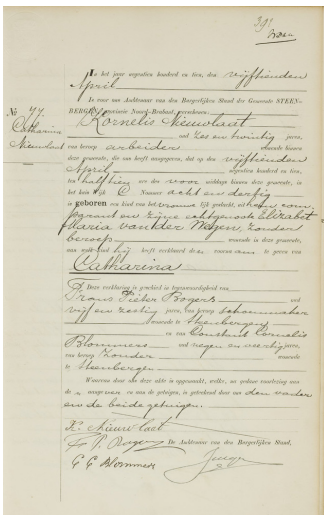 In het jaar negentien honderd en tien, den vijftienden
April
Is voor ons Ambtenaar van den Burgerlijken Stand der Gemeente STEEN-
BERGEN, provincie Noord-Brabant, verschenen:
Kornelis Nieuwlaat
oud zes en twintig jaren,
No. 77
Catharina
Nieuwlaat
van beroep arbeider wonende binnen
deze gemeente, die ons heeft aangegeven, dat op den vijftienden
April negentien honderd en tien,
ten half tien ure des voormiddags binnen deze gemeente, in
het huis wijk C Nummer acht en dertig
is geboren een kind van het vrouwelijk geslacht, uit hem com-
parant en zijne echtgenoote Elizabet
Maria van der Wegen, zonder
beroep, wonende in deze gemeente,
aan welk kind hij heeft verklaard den voornaam te geven van
Catharina
Deze verklaring is geschied in tegenwoordigheid van
Frans Pieter Bogers oud
vijf en zestig jaren, van beroep schoenmaker
wonende te Steenbergen
en van Constant Cornelis
Blommers oud negen en veertig jaren,
van beroep zonder wonende
te Steenbergen.
Waarvan door ons deze akte is opgemaakt, welke, na gedane voorlezing aan
de aangever en aan de getuigen, is geteekend door ons den vader
en de beide getuigen.
K. Nieuwlaat
F. P. Bogers De Ambtenaar van den Burgerlijken Stand,
C C Blommers